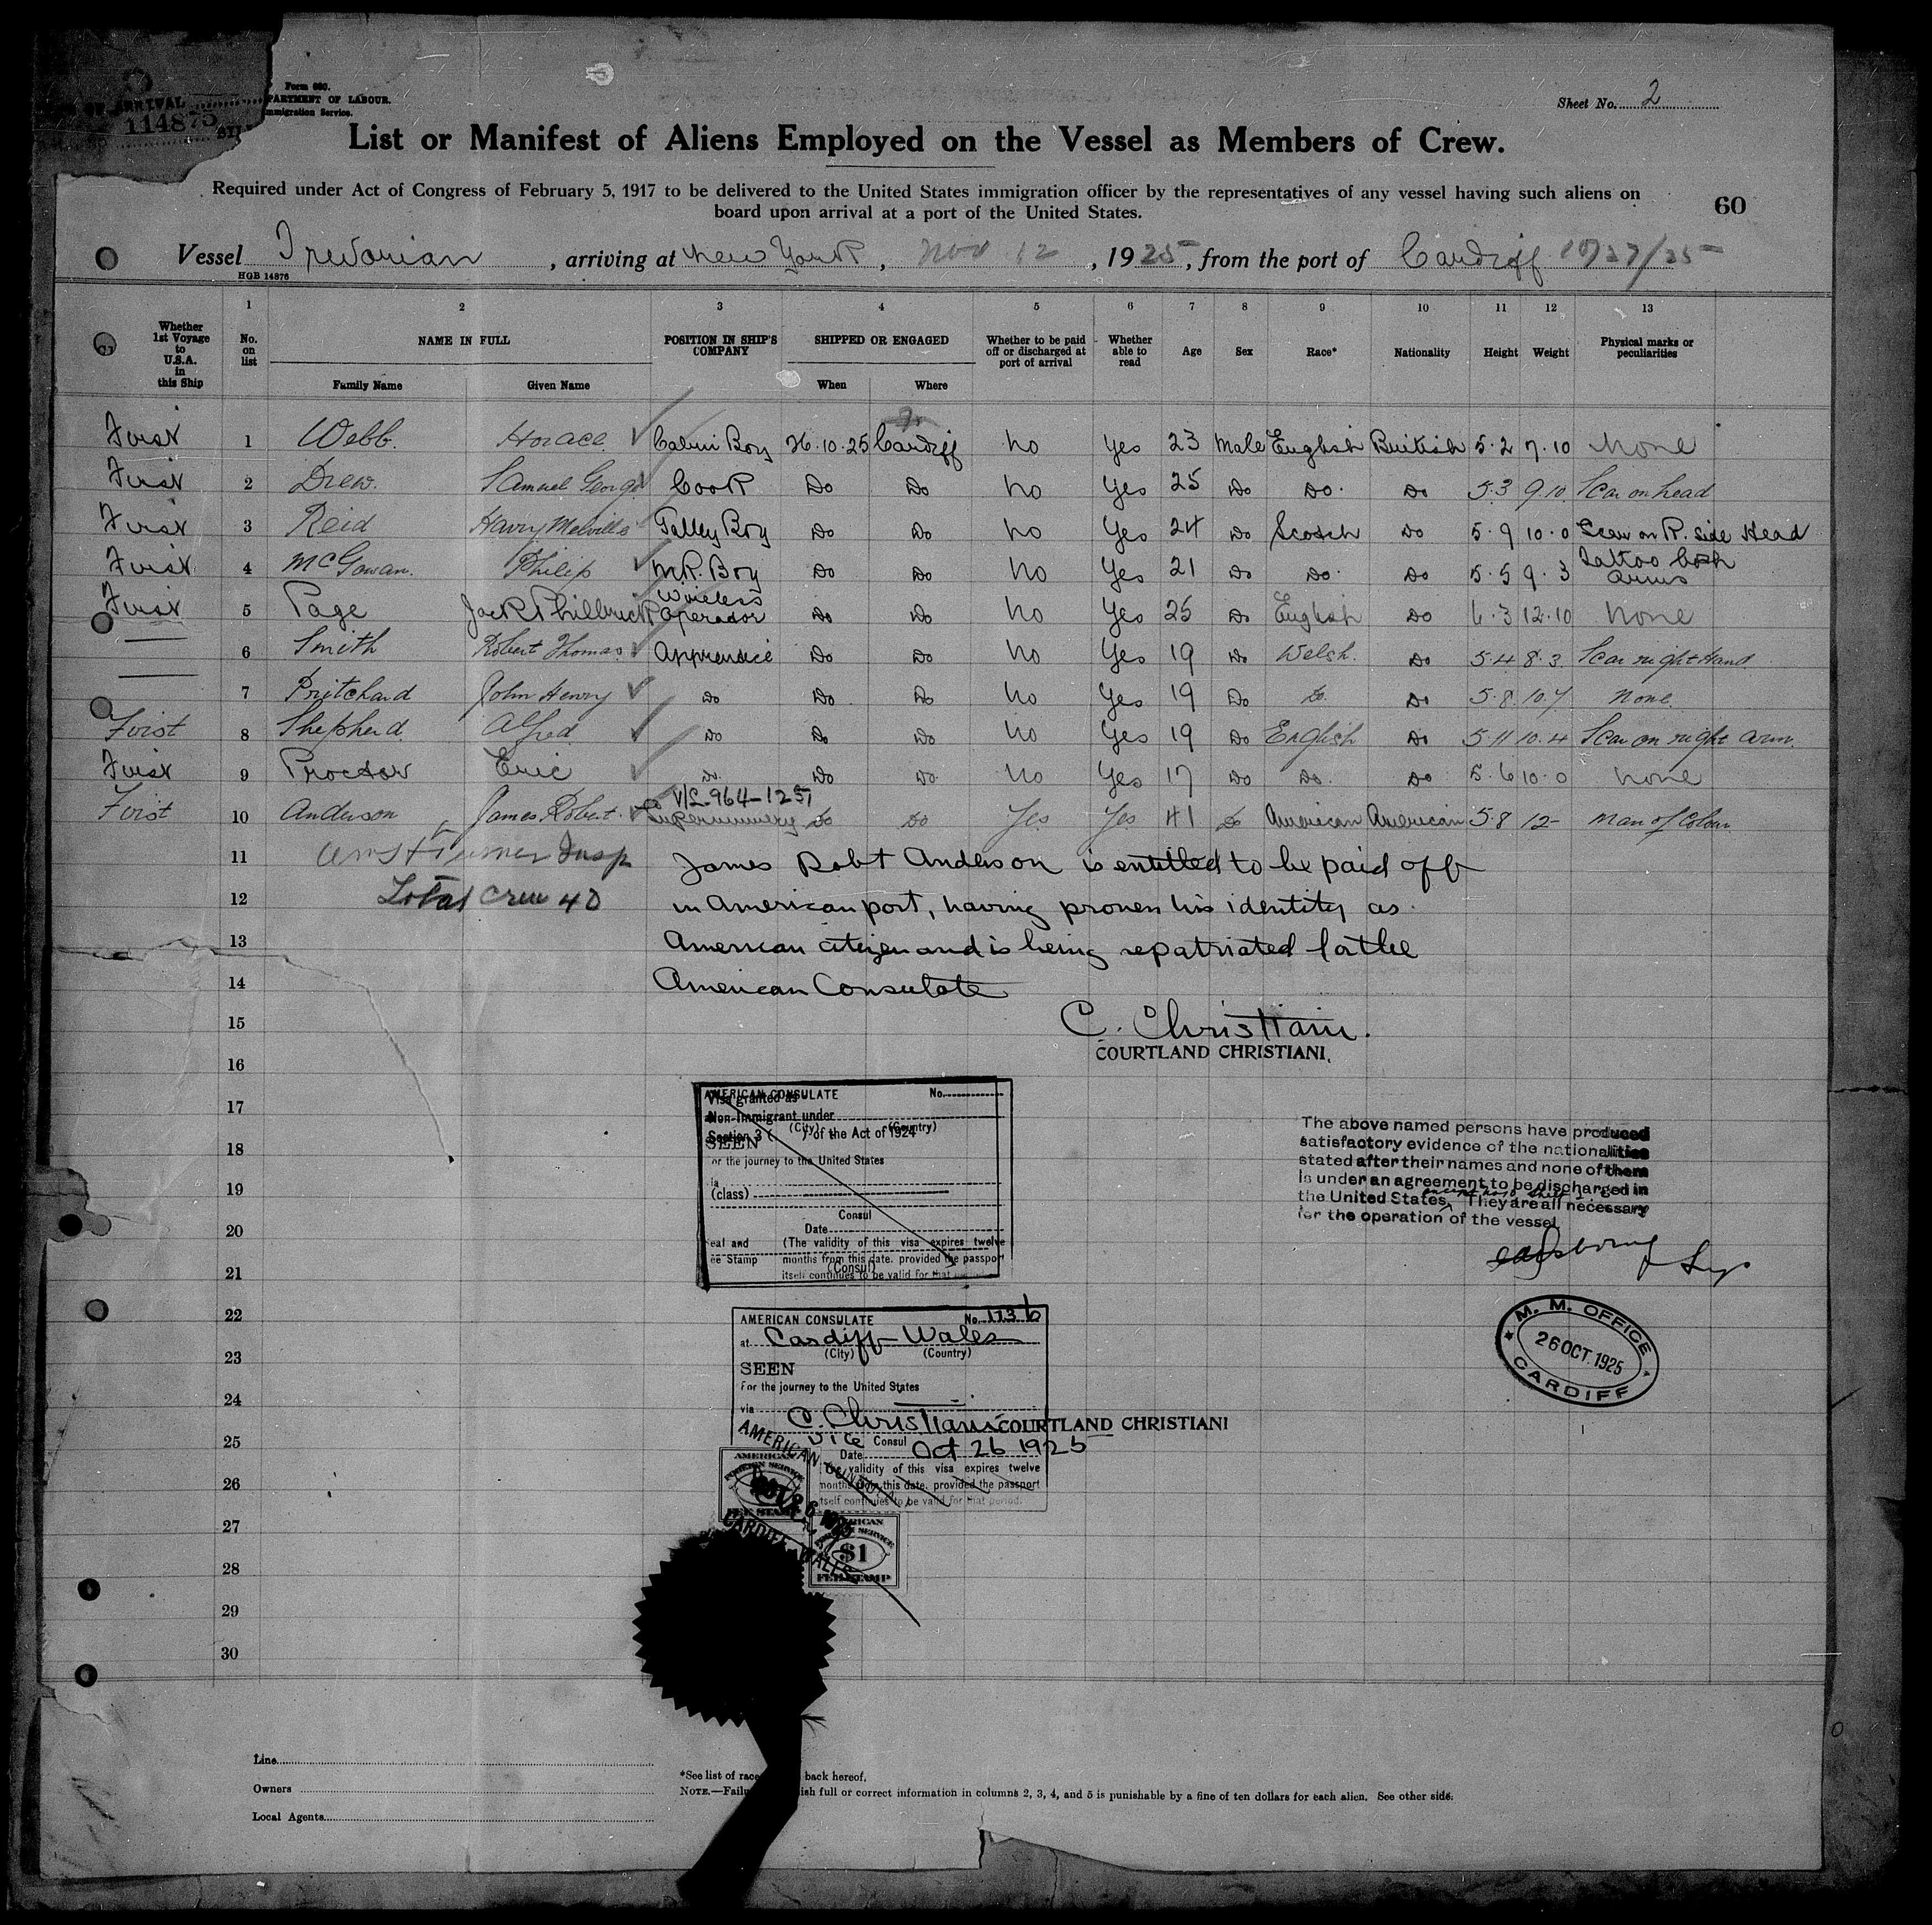 OF ARRIVAL
114875
Form 680.
PARTMENT OF LABOUR.
mmigration Service.
Sheet No. 2
List or Manifest of Aliens Employed on the Vessel as Members of Crew.
Required under Act of Congress of February 5, 1917 to be delivered to the United States immigration officer by the representatives of any vessel having such aliens on
board upon arrival at a port of the United States.
60
Vessel Trevorian, arriving at New York, Nov 12, 1925, from the port of Cardiff 10/27/25
HGB 14876
1 2 3 4 5 6 7 8 9 10 11 12 13
Whether 1st Voyage to U.S.A. in this Ship No. on list NAME IN FULL Family Name Given Name POSITION IN SHIP'S COMPANY SHIPPED OR ENGAGED When Where Whether to be paid off or discharged at port of arrival Whether able to read Age Sex Race* Nationality Height Weight Physical marks or peculiarities
First 1 Webb. Horace Cabin Boy 26.10.25 Cardiff No Yes 23 Male English British 5.2 7.10 None
First 2 Drew. Samuel George Cook Do Do No Yes 25 Do Do. Do 5.3 9.10. Scar on head
First 3 Reid Harry Melville Galley Boy Do Do No Yes 24 Do Scotch Do 5.9 10.0 Scar on R. side Head
First 4 McGowan. Philip M.R. Boy Do Do No Yes 21 Do Do. Do 5.5 9.3 Tattoo both arms
First 5 Page Jack Philbrick Wireless Operator Do Do No Yes 25 Do English Do 6.3 12.10 None
— 6 Smith Robert Thomas Apprentice Do Do No Yes 19 Do Welsh. Do 5.4 8.3 Scar right Hand
— 7 Pritchard John Henry Do Do Do No Yes 19 Do Do. Do 5.8 10.7 None.
First 8 Shepherd. Alfred Do Do Do No Yes 19 Do English Do 5.11 10.4 Scar on right arm.
First 9 Proctor Eric Do. Do Do. No Yes 17 Do Do. Do 5.6 10.0 None
V/L-964-1257
First 10 Anderson James Robert. Supernumery Do Do Yes Yes 41 Do American American 5.8 12- Man of Colour
11 Turner Insp James Robt Anderson is entitled to be paid off
12 Total Crew 40 in American port, having proven his identity as
13 American citizen and is being repatriated by the
14 American Consulate
15 C. Christiani.
COURTLAND CHRISTIANI.
16
17
18
19
20
21
22
23
24
25
26
27
28
29
30
AMERICAN CONSULATE No.
Visa granted as
Non-Immigrant under
(City) (Country)
Section 3 ( ) of the Act of 1924
SEEN
for the journey to the United States
(class)
Consul
Date
eal and (The validity of this visa expires twelve
ee Stamp months from this date. provided the passport
(Consul)
itself continues to be valid for that period.
The above named persons have produced
satisfactory evidence of the nationalities
stated after their names and none of them
is under an agreement to be discharged in
the United States. They are all necessary
for the operation of the vessel
M. M. OFFICE
26 OCT. 1925
CARDIFF
AMERICAN CONSULATE No. 1136
at Cardiff-Wales
(City) (Country)
SEEN
For the journey to the United States
via
C. Christiani COURTLAND CHRISTIANI
Vice Consul
Date Oct 26 1925
The validity of this visa expires twelve
months from this date. provided the passport
itself continues to be valid for that period.
AMERICAN CONSULATE
CARDIFF, WALES
AMERICAN
FOREIGN SERVICE
FEE STAMP
AMERICAN
FOREIGN SERVICE
$1
FEE STAMP
Line
Owners
Local Agents
*See list of race back hereof.
NOTE.—Failu ish full or correct information in columns 2, 3, 4, and 5 is punishable by a fine of ten dollars for each alien. See other side.